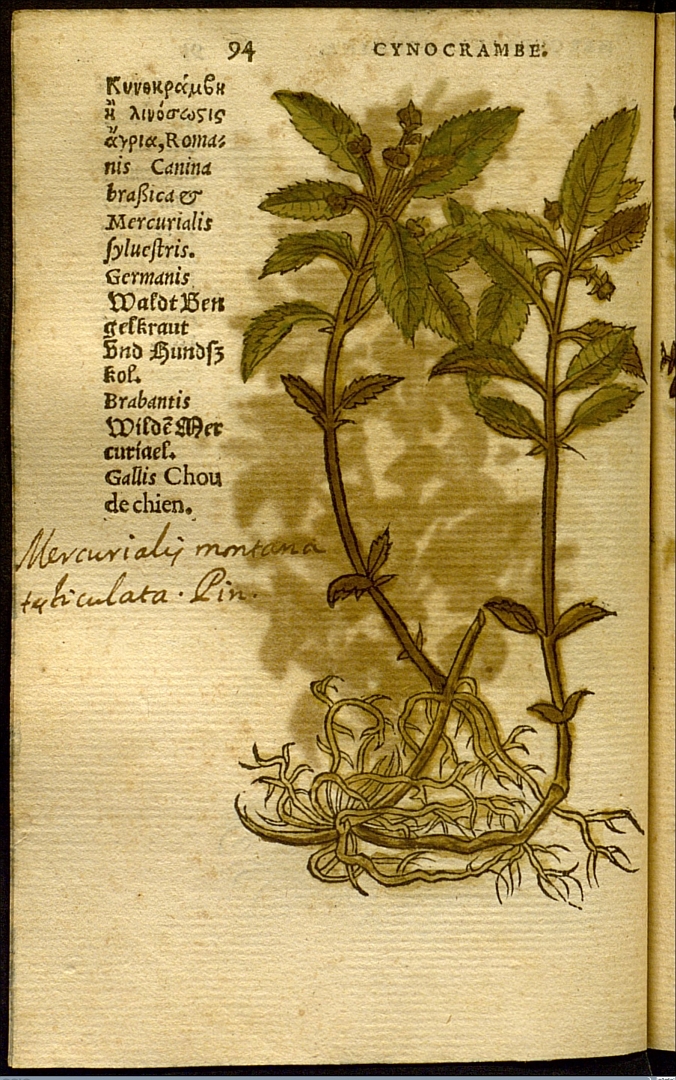 94 CYNOCRAMBE.
Κυνοκράμβη
ἢ λινόζωστις
ἄγρια, Roma-
nis Canina
braßica &
Mercurialis
ſylueſtris.
Germanis
Waldt Ben
gelkraut
vnd Hundſz
kol.
Brabantis
Wildē Mer
curiael.
Gallis Chou
de chien.
Mercurialis montana
teſticulata. Pin.